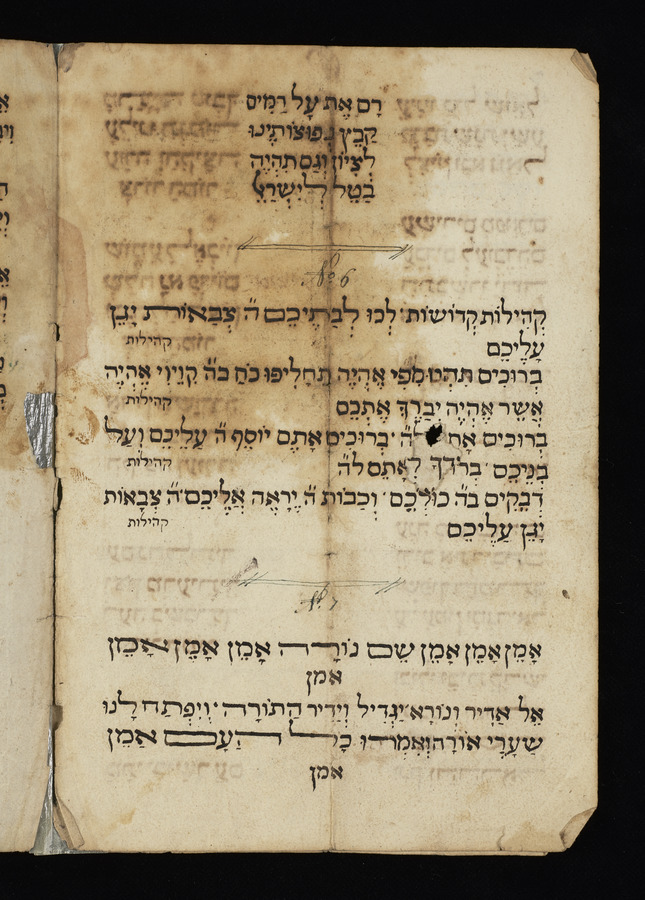 רָם אֶת עָל רָמִים
קַבֵּץ נְפוּצוֹתֵינוּ
לְצִיּוֹן וְגַם תִּהְיֶה
No 6
קְהִילוֹת קְדוֹשׁוֹת לְכוּ לְבָתֵּיכֶם ה' צְבָאוֹת יָגֵן
עֲלֵיכֶם קהילות
בְּרוּכִים תִּהְיוּ מִפִּי אֶהְיֶה תַּחֲלִיפוּ כֹחַ כה קֹוֵיוִי אֶהְיֶה
אֲשֶׁר אֶהְיֶה יְבָרֵךְ אֶתְכֶם קהילות
בְּרוּכִים לה' בְּרוּכִים אַתֶּם יוֹסֵף ה' עֲלֵיכֶם וְעַל
בְּנֵיכֶם לה' קהילות
דְבֵקִים בה' כּוּלְּכֶם וּכְבוֹת ה' יֵרָאֶה אֲלֵיכֶם ה' צְבָאוֹת
יָגֵן עֲלֵיכֶם קהילות
No 7
אָמֵן אָמֵן אָמֵן שֵׁם נוֹרָה אָמֵן אָמֵן אָמֵן
אמן
אֵל אַדִּיר וְנוֹרָא יַגְדִּיל וְיַדִּיר הַתּוֹרָה וְיִפְתַּח לָנוּ
שַׁעֲרֵי אוֹרָה וְאִמְרוּ כָּל הָעָם אָמֵן
אמן